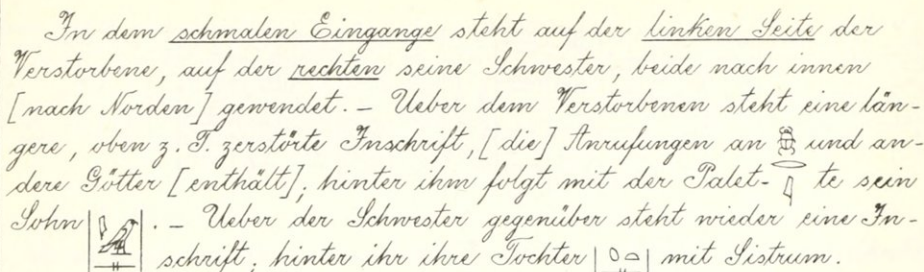 In dem schmalen Eingange steht auf der linken Seite der
Verstorbene, auf der rechten seine Schwester, beide nach innen
[nach Norden] gewendet. – Ueber dem Verstorbenen steht eine län-
gere, oben z. T. zerstörte Inschrift, [die] Anrufungen an und an-
dere Götter [enthält]; hinter ihm folgt mit der Palet- te sein
Sohn . – Ueber der Schwester gegenüber steht wieder eine In-
schrift; hinter ihr ihre Tochter mit Sistrum.